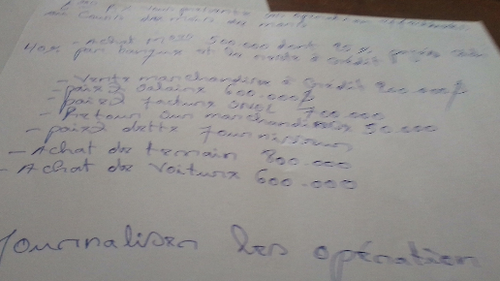 au cours du mois de mars
- Achat M/SES 500.000 dont 20 % payés
40% par banque et le reste à crédit
- Vente marchandises à crédit 200.000 F
- paix2 Salaire 600.000 F
- paix2 facture SNEL 700.000
- Retour sur marchandises 50.000
- paix2 dette Fournisseur
- Achat de terrain 800.000
- Achat de voiture 600.000
Journaliser les opération